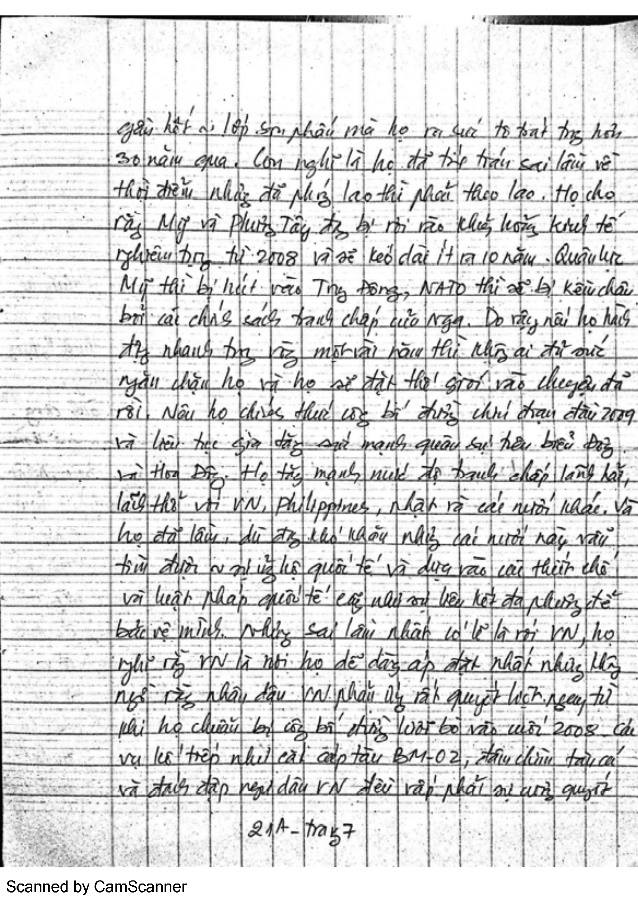 gần hết ~ lớp sơn phấn mà họ ra sức tô trát trg hơn
30 năm qua. Con nghĩ là họ đã tiếp trán sai lầm về
thời điểm nhưg đã phóg lao thì phải theo lao. Họ cho
rằg Mỹ và Phươg Tây đg bị rơi vào khủg hoảg kinh tế
nghiêm trọg từ 2008 và sẽ kéo dài ít ra 10 năm. Quân lực
Mỹ thì bị hút vào Trg Đôg, NATO thì sẽ bị kềm chân
bởi các chính sách tranh chấp của Nga. Do vậy nếu họ hành
độg nhanh trg vòg một vài năm thì khôg ai đủ sức
ngăn chặn họ và họ sẽ đặt thế giới vào chuyện đã
rồi. Nên họ chính thức côg bố đườg chữ đoạn đầu 2009
và liên tục gia tăg sức mạnh quân sự trên biển Đôg
và Hoa Đôg. Họ tăg mạnh mức độ tranh chấp lãnh hải,
lãnh thổ với VN, Philippines, Nhật và các nước khác. Và
họ đã lầm, dù đg khó khăn nhưg các nước này vẫn
tìm được ~ sự ủg hộ quốc tế và dựa vào các thiết chế
và luật pháp quốc tế cũg như sự liên kết đa phươg để
bảo vệ mình. Nhưg sai lầm nhất có lẽ là với VN, họ
nghĩ rằg VN là nơi họ dễ dàg áp đặt nhất nhưg khôg
ngờ rằg nhân dân VN phản ứg rất quyết liệt ngay từ
khi họ chuẩn bị côg bố đườg lưỡi bò vào cuối 2008. Các
vụ kế tiếp như cắt cáp tàu BM-02, đâm chìm tàu cá
và đánh đập ngư dân VN đều vấp phải sự cươg quyết
21A-trag 7
Scanned by CamScanner